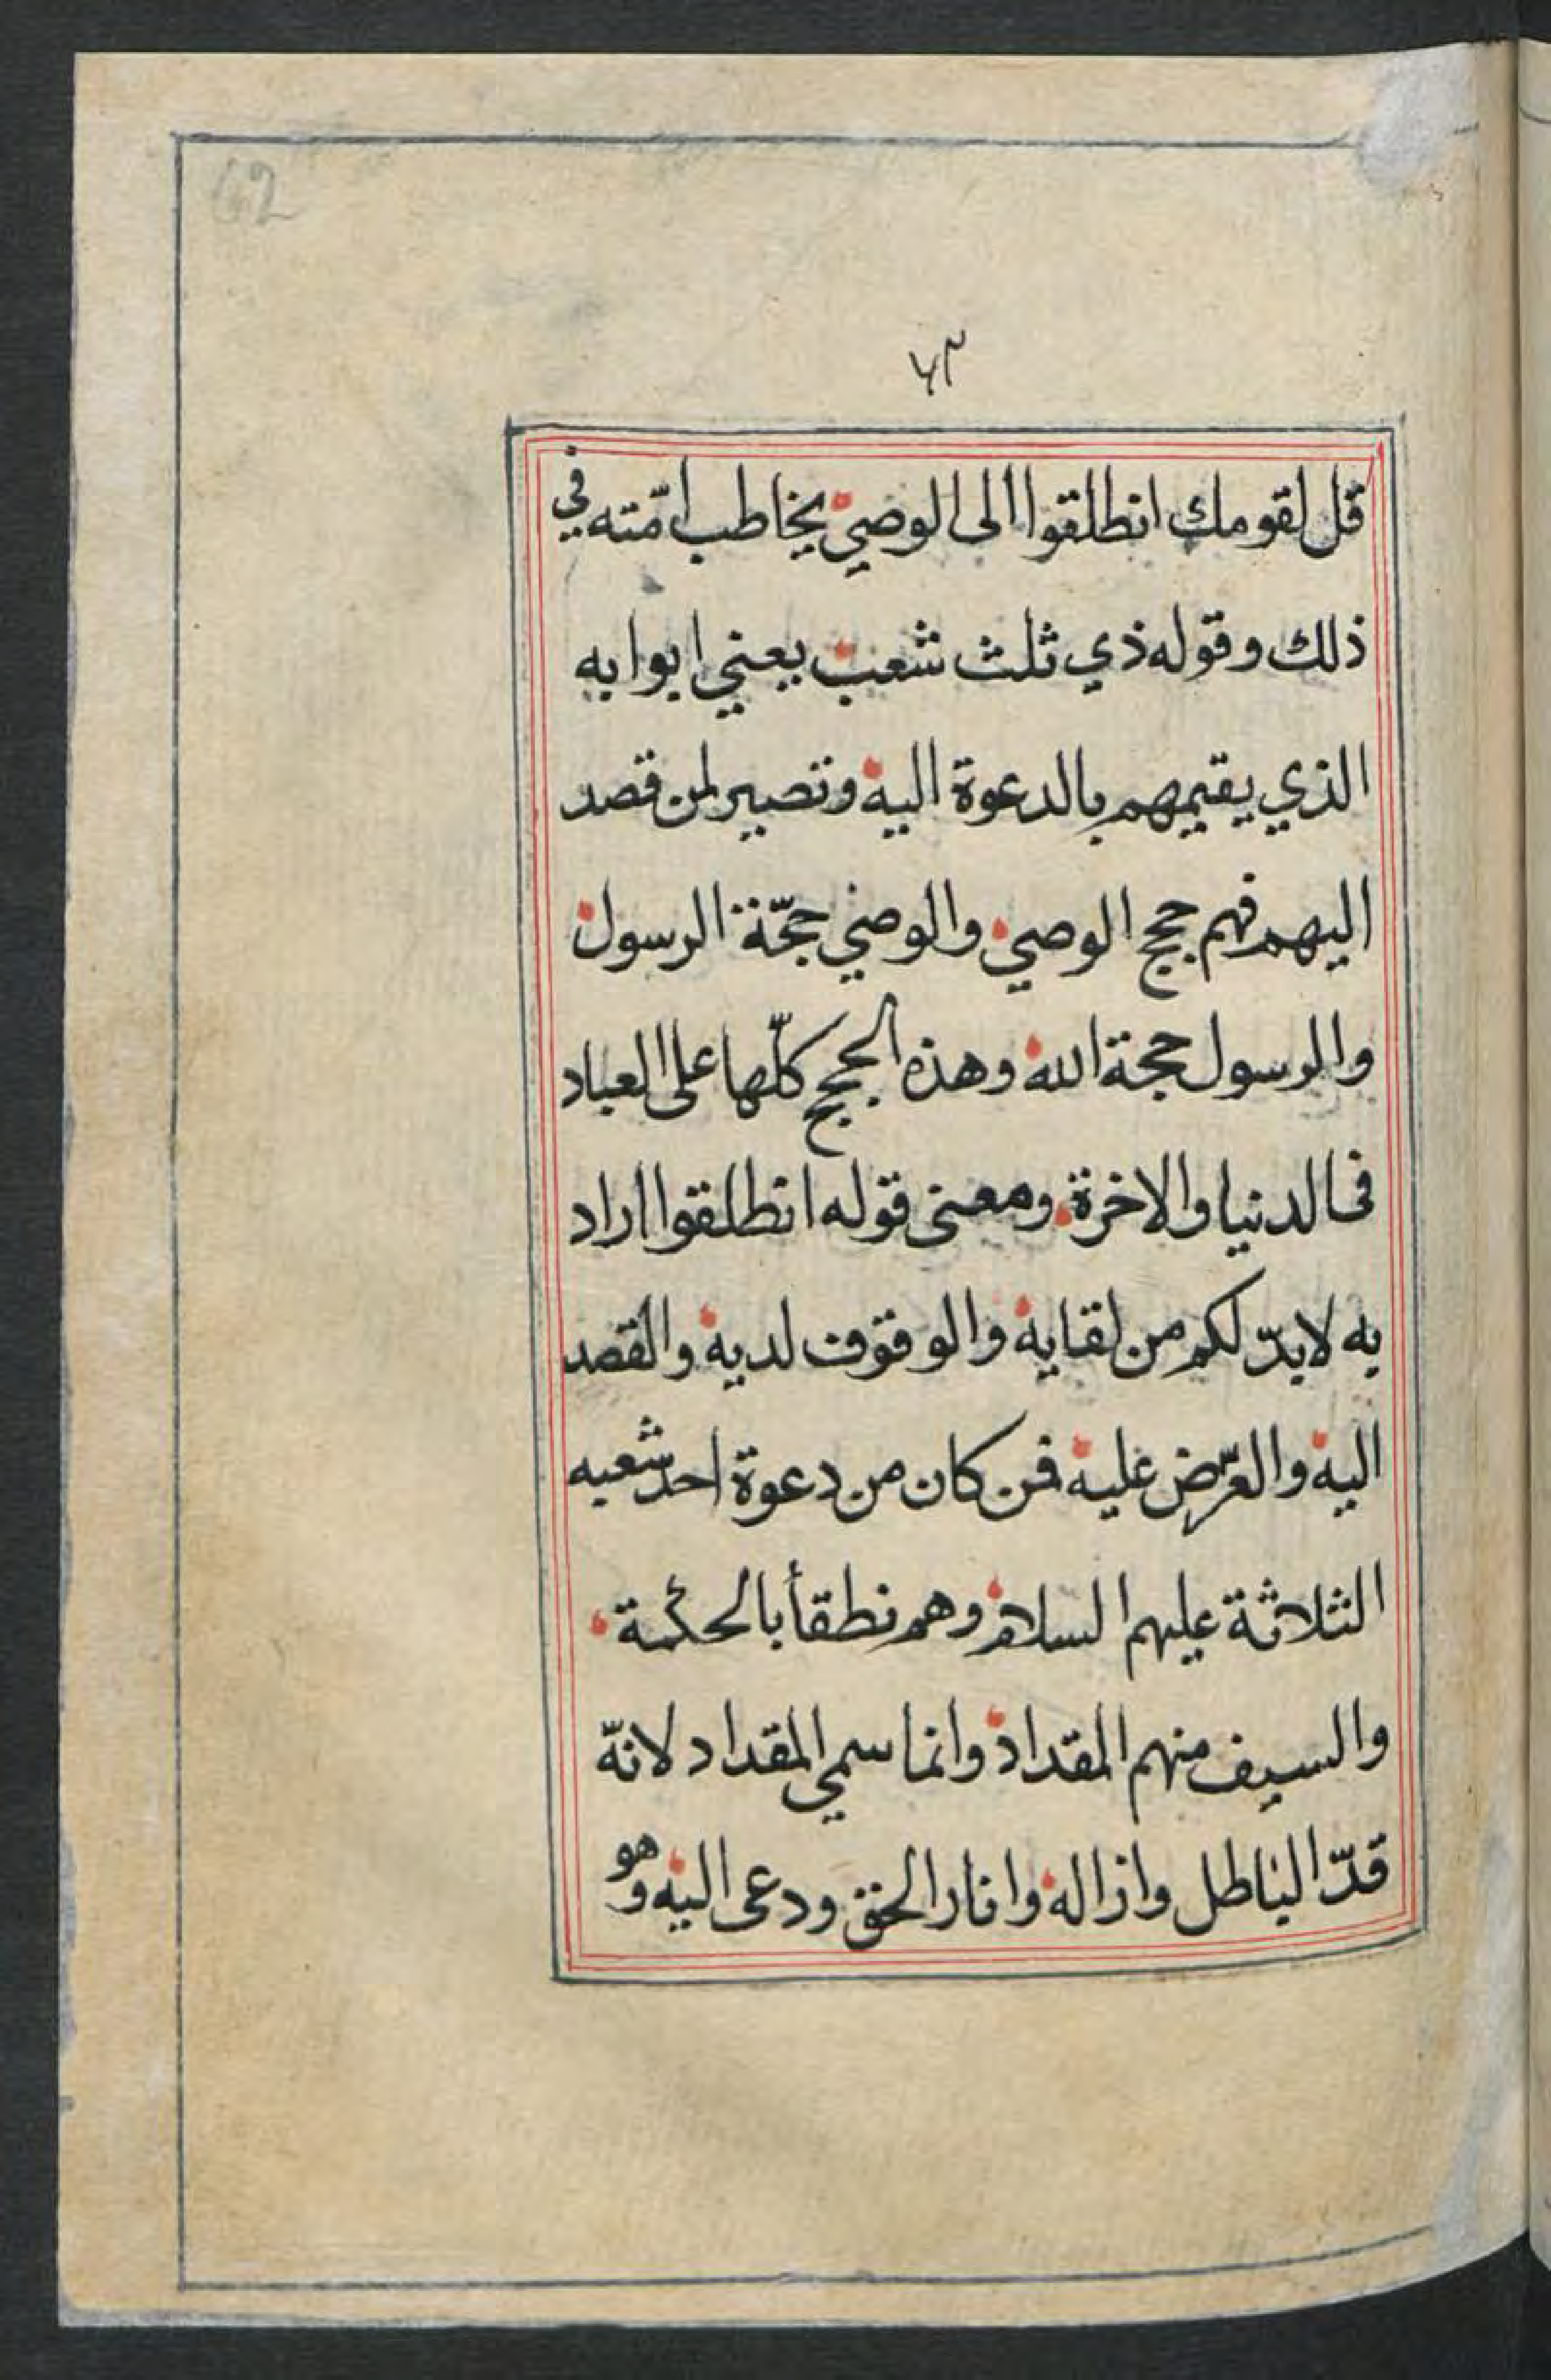 62
۶۲
قل لقومك انطلقوا الى الوصي يخاطب امّته في
ذلك وقوله ذي ثلث شعب يعني ابوابه
الذي يقيمهم بالدعوة اليه وتصير لمن قصد
اليهم فهم حجج الوصي والوصي حجّة الرسول
والرسول حجة الله وهذه الحجج كلّها على العباد
فى الدنيا والاخرة ومعنى قوله انطلقوا اراد
به لابدّ لكم من لقايه والوقوف لديه والقصد
اليه والعرض عليه فمن كان من دعوة احد شعبه
الثلاثة عليهم السلام وهم نطقأ بالحكمة
والسيف منهم المقداد وانما سمي المقداد لانّه
قدّ الباطل وازاله وانار الحق ودعى اليه وهو